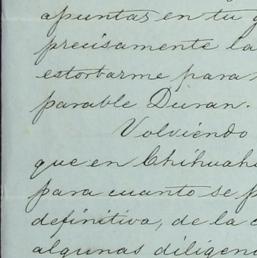 apuntas en tu
precisamente la
estorbarme para
parable Duran.
Volviendo
que en Chihuah
para cuanto se p
definitiva, de la
algunas diligen